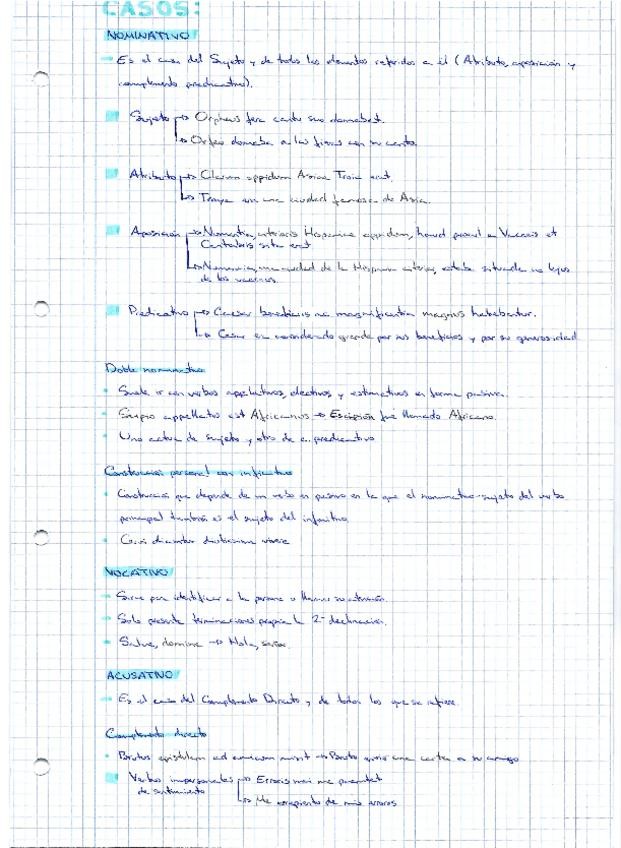 CASOS:
NOMINATIVO
Es el caso del Sujeto y de todos los elementos referidos a él (Atributo, aposición y
complemento predicativo).
Sujeto → Orpheus fera cantu suo domabat.
→ Orfeo domaba a las fieras con su canto
Atributo → Clarum oppidum Asiae Troia erat.
→ Troya era una ciudad famosa de Asia.
Aposición → Numantia, citerioris Hispaniae oppidum, haud procul a Vacceis et
Cantabris sita erat
→ Numancia, una ciudad de la Hispania citerior, estaba situada no lejos
de los vacceos
Predicativo → Caesar beneficiis ac magnificentia magnus habebatur.
→ César era considerado grande por sus beneficios y por su generosidad
Doble nominativo
Suele ir con verbos apelativos, electivos y estimativos en forma pasiva.
Scipio appellatus est Africanus → Escipión fue llamado Africano.
Uno actúa de sujeto y otro de c. predicativo
Construcción personal con infinitivo
Construcción que depende de un verbo en pasiva en la que el nominativo-sujeto del verbo
principal también es el sujeto del infinitivo
VOCATIVO
Sirve para identificar a la persona o llamar su atención.
Solo presenta terminaciones propias la 2ª declinación.
Salve, domine → Hola, señor.
ACUSATIVO
Es el caso del Complemento Directo y de todos los que se refiere.
Complemento directo
Brutus epistulam ad amicum misit → Bruto envió una carta a su amigo
Verbos impersonales → Erroris mei me paenitet
de sentimiento
→ Me arrepiento de mis errores